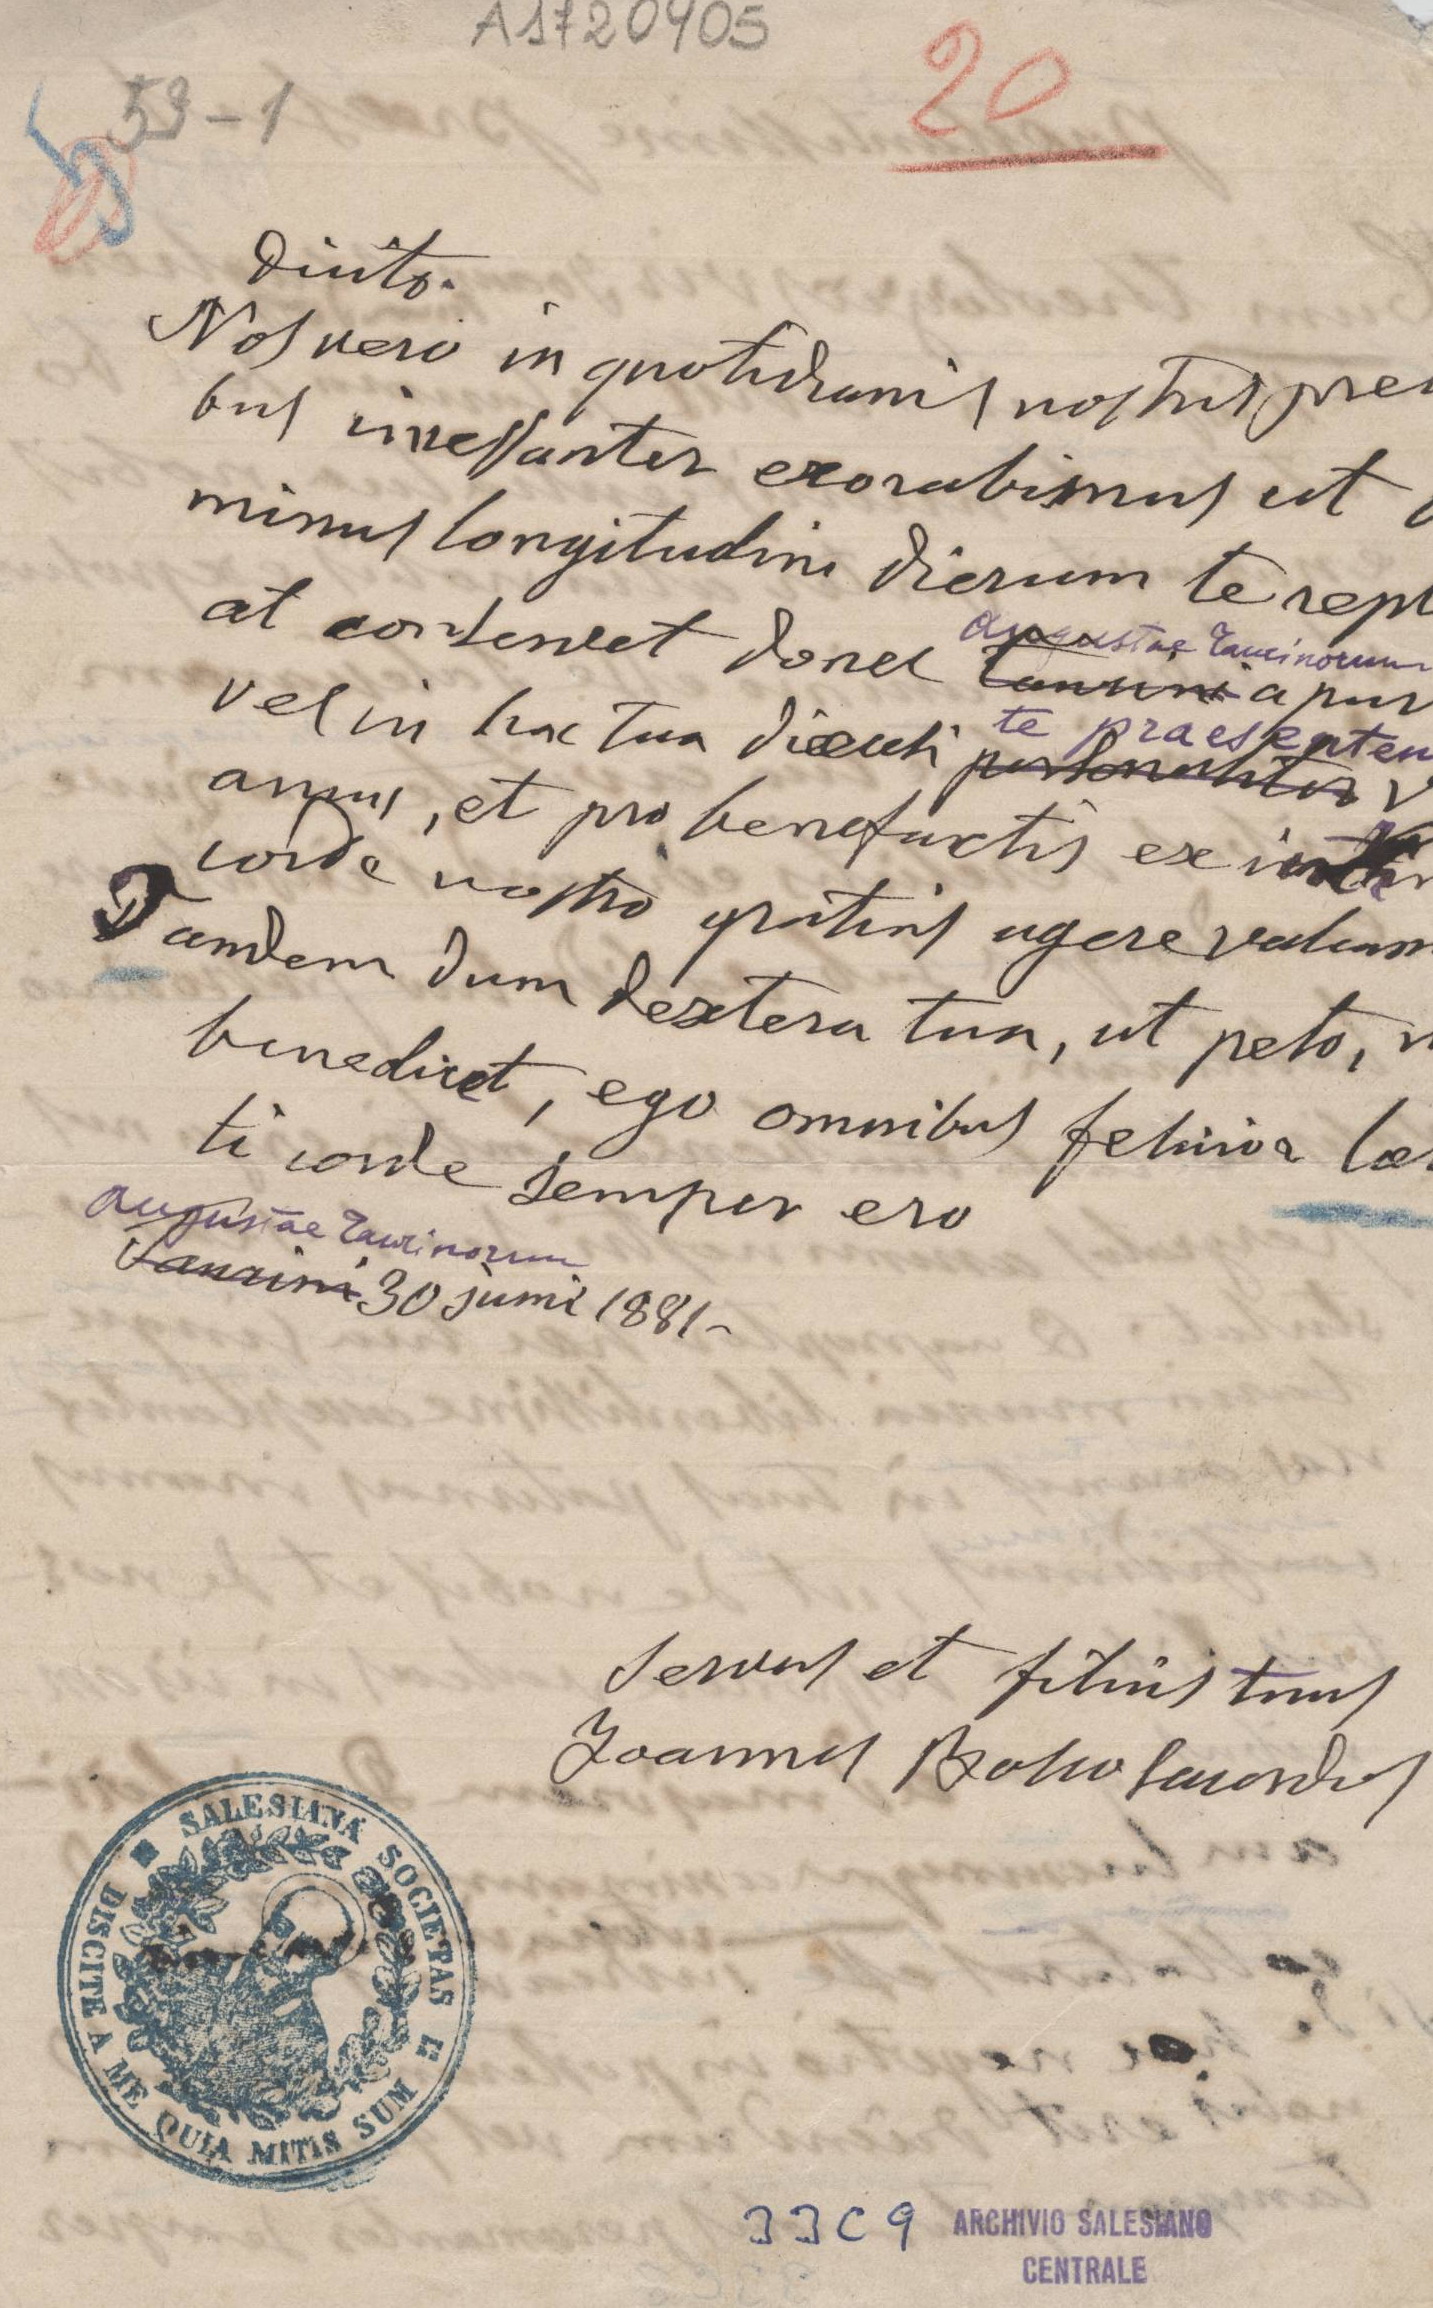 A1720405
20
53-1
Nos vero in quotidianis nostris prec
bus incessanter exorabimus ut
minus longitudine dierum te repl
at conservet donec Taurini apu
Augustae Taurinorum
vel in hac tua dioecesi personaliter v
te praesentem
amus, et pro benefactis ex
corde nostro gratias agere valeam
Tandem dum dextera tua, ut peto,
benedicet, ego omnibus felicior lae
ti corde semper ero
Augustae Taurinorum
Taurini 30 junii 1881-
servus et filius tuus
Joannes Bosco sacerdos
SALESIANA SOCIETAS
DISCITE A ME QUIA MITIS SUM
33C9
ARCHIVIO SALESIANO
CENTRALE